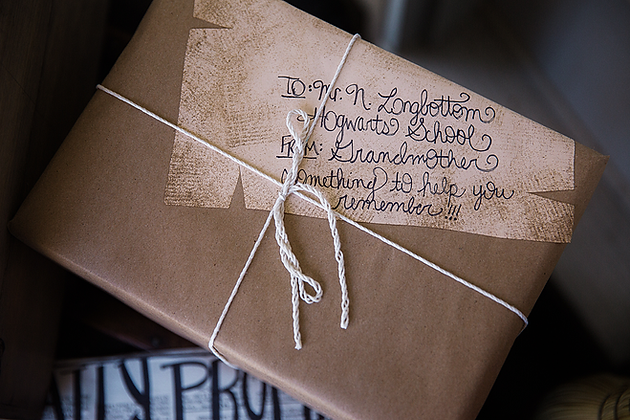 TO: Mr. N. Longbottom
Hogwarts School
FROM: Grandmother
Something to help you
remember!!!
ILY PROP